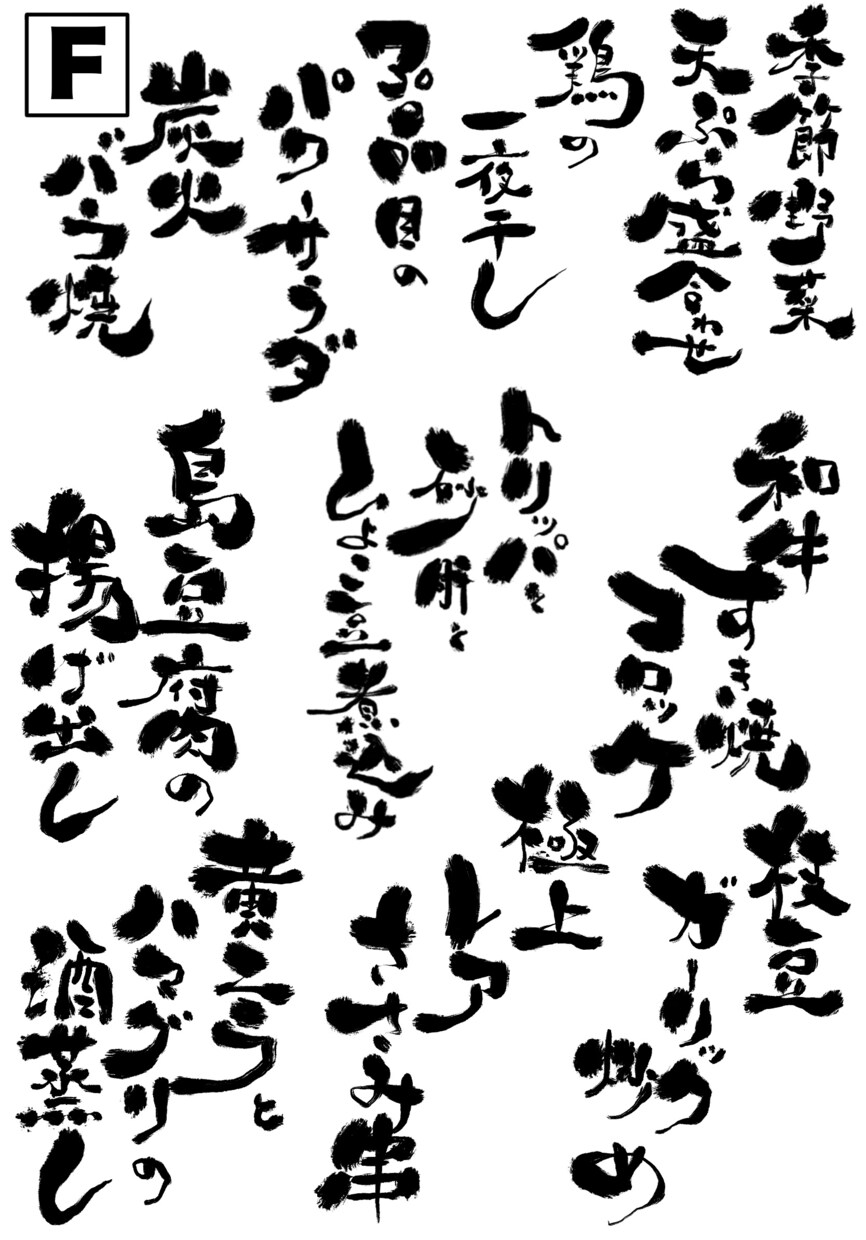 F
季節野菜
天ぷら盛合わせ
鶏の
一夜干し
品目の
パワーサラダ
炭火
バラ焼
和牛
すき焼
コロッケ
トリッパと
砂肝と
ひよこ豆煮込み
島豆腐肉の
揚げ出し
枝豆
ガーリック
炒め
極上
レア
ささみ串
黄ニラと
ハマグリの
酒蒸し